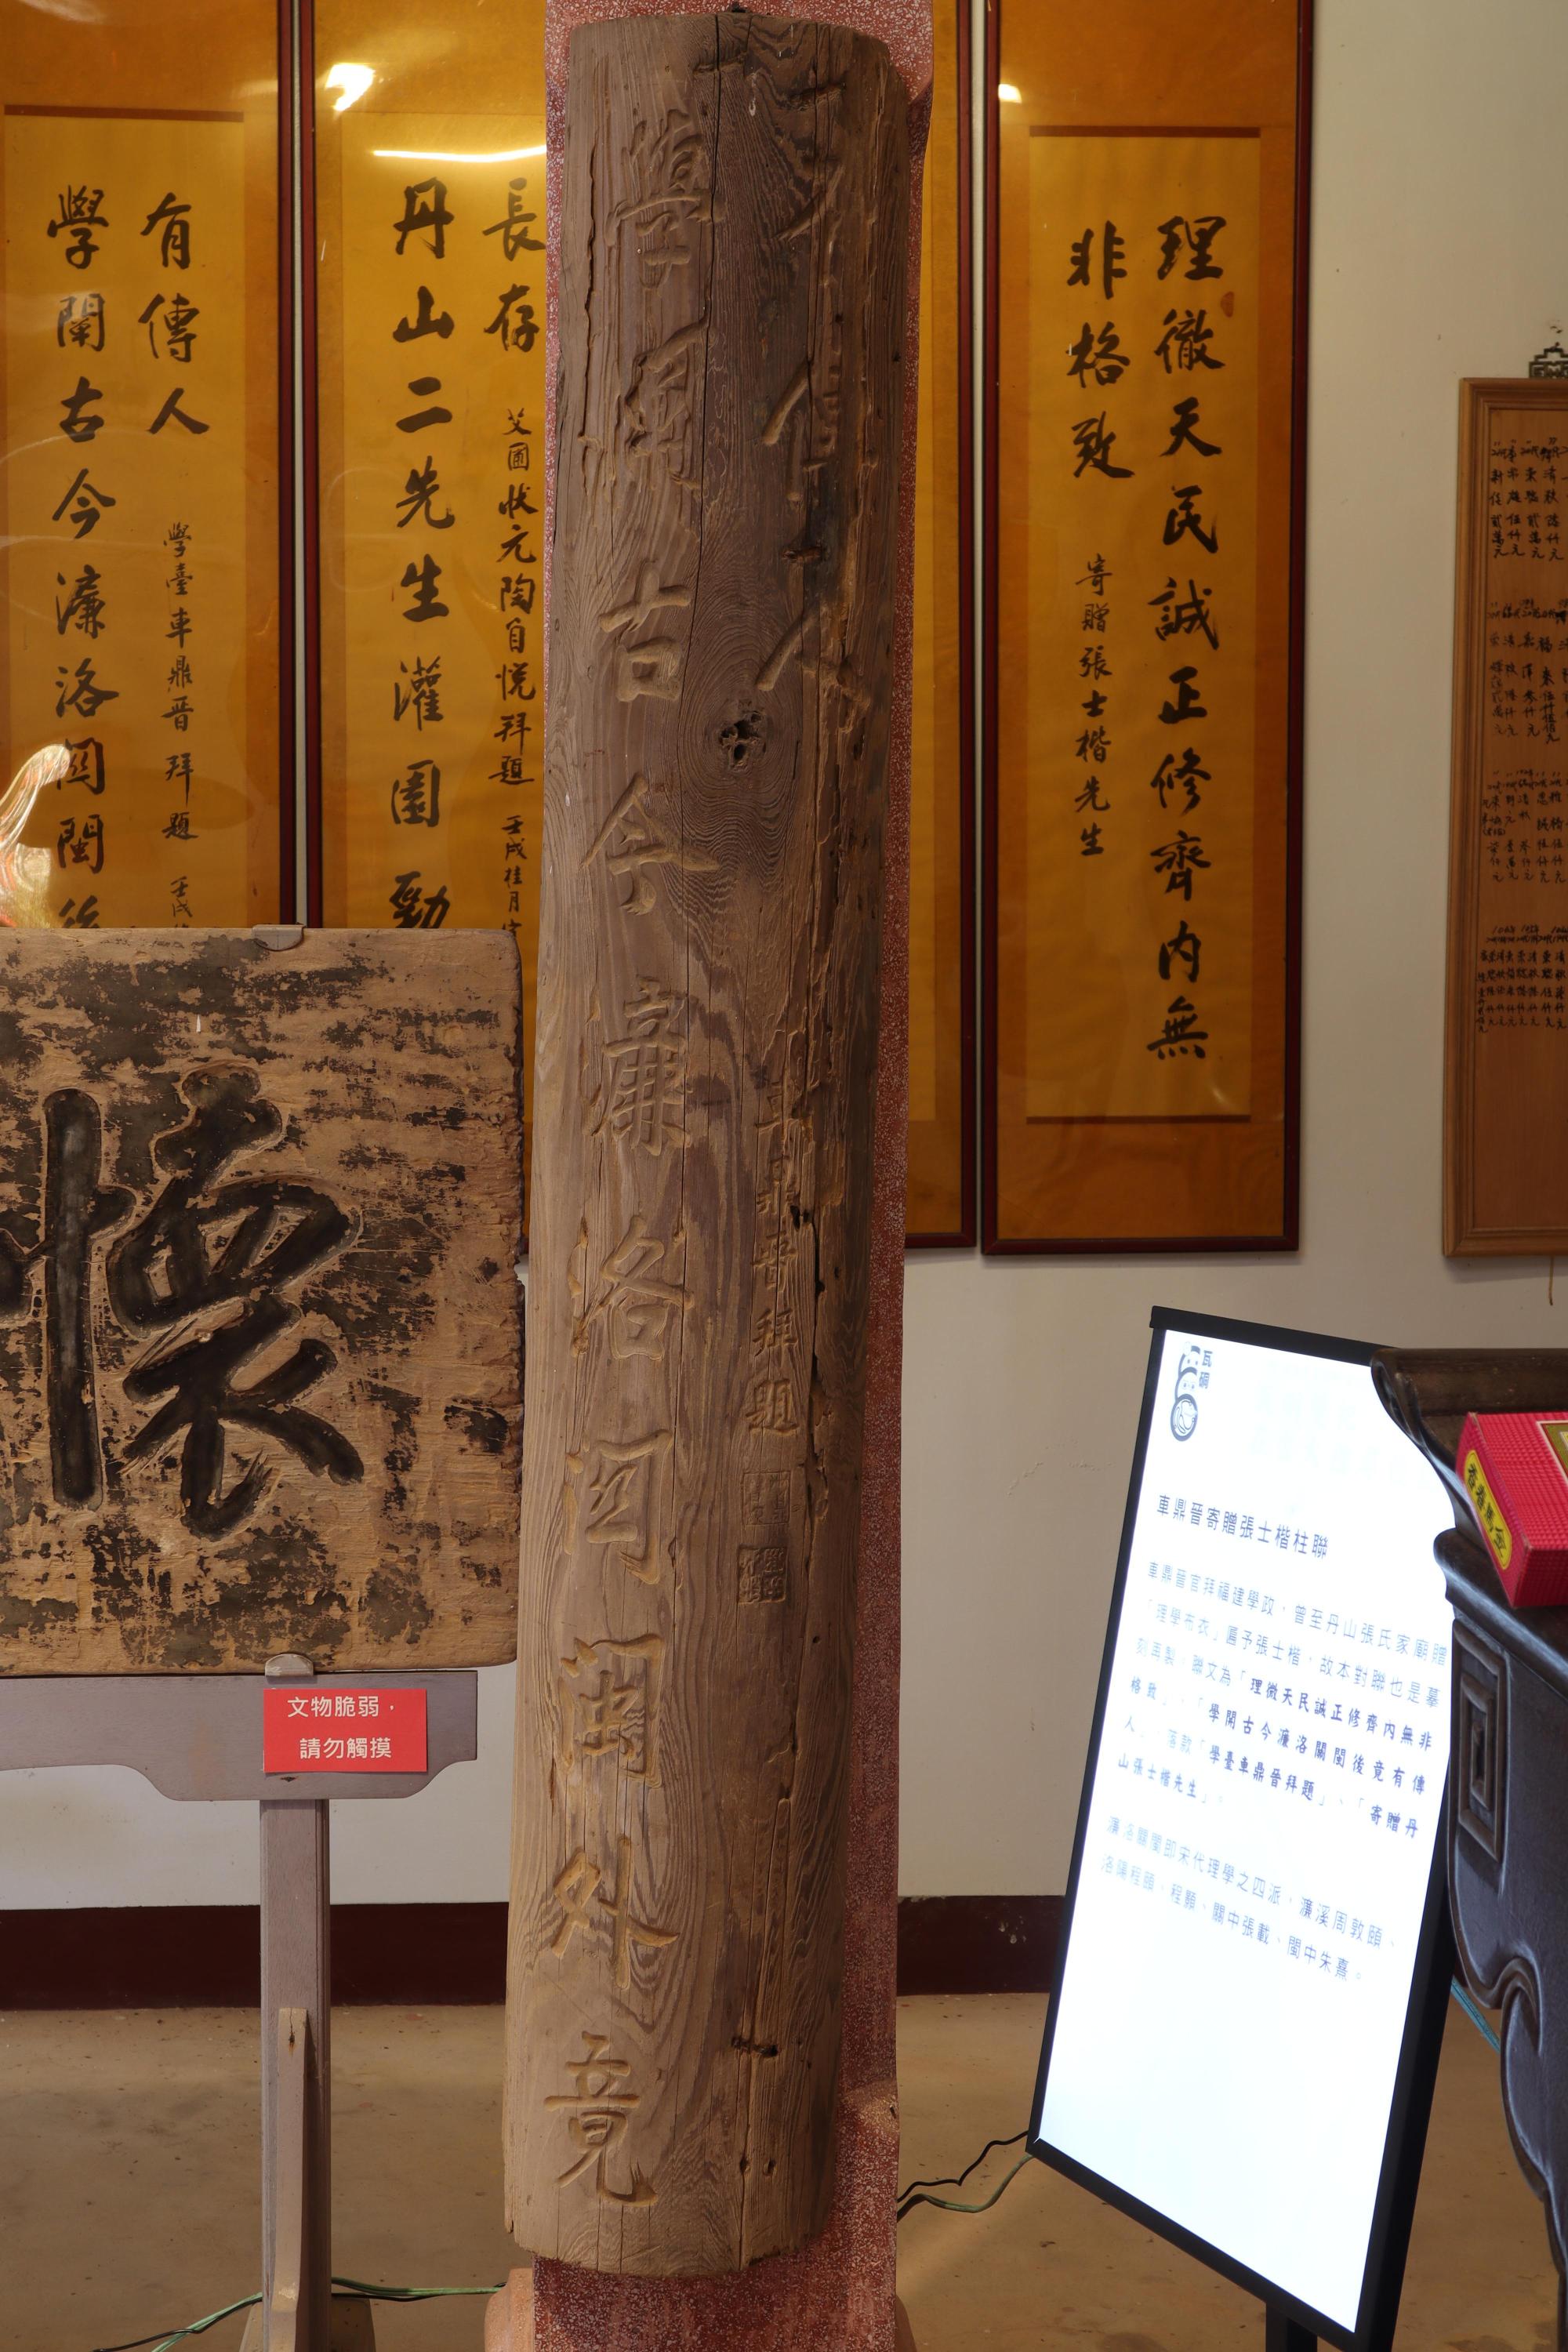 理徹天民誠正修齊內無
非格致
寄贈張士楷先生
長存
艾國狀元陶自悅拜題 壬戌桂月
丹山二先生灌園勁
有傳人
學臺車鼎晉拜題 壬戌
學闌古今濂洛関閩後
學闌古今濂洛関閩外竟
有傳人
車鼎晉拜題
懷
文物脆弱，
請勿觸摸
瓦硐
車鼎晉寄贈張士楷柱聯
車鼎晉官拜福建學政，曾至丹山張氏家廟贈
「理學布衣」匾予張士楷，故本對聯也是摹
刻再製，聯文為「理微天民誠正修齊內無非
格致」、「學開古今濂洛關閩後竟有傳
人」，落款「學臺車鼎晉拜題」、「寄贈丹
山張士楷先生」。
濂洛關閩即宋代理學之四派，濂溪周敦頤、
洛陽程頤、程顥、關中張載、閩中朱熹。